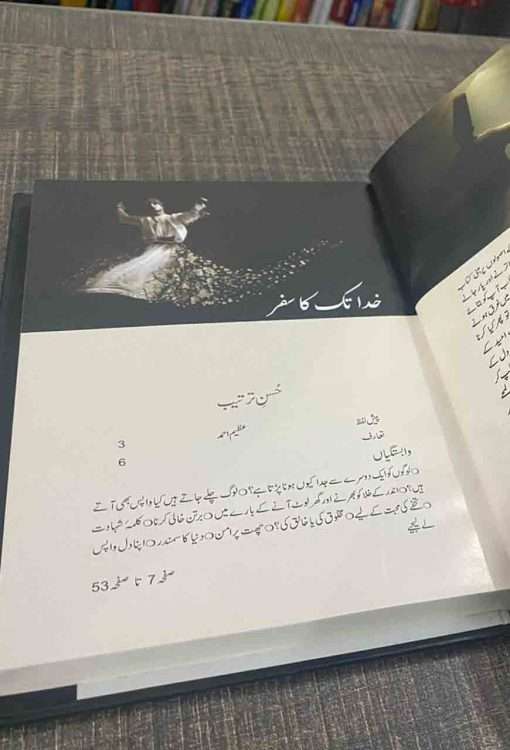 خدا تک کا سفر
حُسنِ ترتیب
پیش لفظ
تعارف عظیم احمد 3
وابستگیاں 6
○لوگوں کو ایک دوسرے سے جدا کیوں ہونا پڑتا ہے؟ ○لوگ چلے جاتے ہیں کیا واپس بھی آتے
ہیں؟ ○اندر کے خلا کو بھرنے اور گھر لوٹ آنے کے بارے میں ○برتن خالی کرنا ○کلمۂ شہادت
○تحفے کی محبت کے لیے ○مخلوق کی یا خالق کی؟ ○چھت پر امن ○دنیا کا سمندر ○اپنا دل واپس
لے لیجیے
صفحہ 7 تا صفحہ 53
اصولوں پر مبنی کتاب